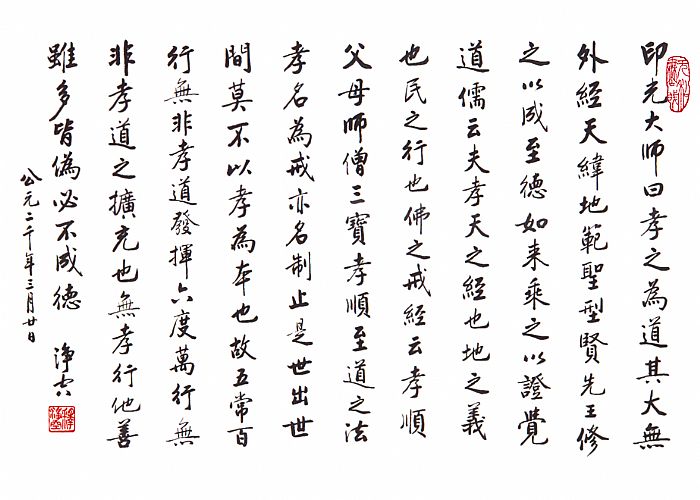 印光大師曰孝之為道其大無
外經天緯地範聖型賢先王修
之以成至德如来乘之以證覺
道儒云夫孝天之經也地之義
也民之行也佛之戒經云孝順
父母師僧三寶孝順至道之法
孝名為戒亦名制止是世出世
間莫不以孝為本也故五常百
行無非孝道發揮六度萬行無
非孝道之擴充也無孝行他善
雖多皆偽必不成德
淨空
公元二千年三月廿日